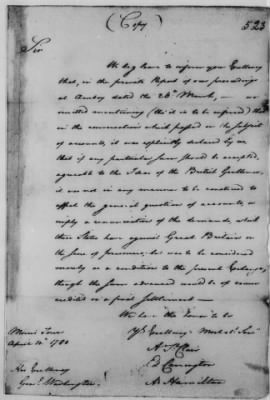 (Copy)
523
Sir
We beg leave to inform your Excellency
that, in the private Report of our proceedings
at Amboy dated the 26th March, — we
omitted mentioning (tho it is to be inferred) that
in the conversations which passed on the subject
of accounts, it was explicitly declared by us
that if any particular sum should be accepted,
agreeable to the Ideas of the British Gentlemen,
it was not in any manner to be construed to
affect the general question of accounts, or
imply a renunciation of the demands, which
these States have against Great Britain on
the score of prisoners; but was to be considered
merely as a condition to the present Exchange,
though the sum advanced would be of course
credited in a final settlement —
We have the Honor to be
Morris Town
April 10th 1780
Yr Excellency's Most obt Servts
Ar St Clair
E Carrington
A Hamilton
His Excellency
Genl Washington